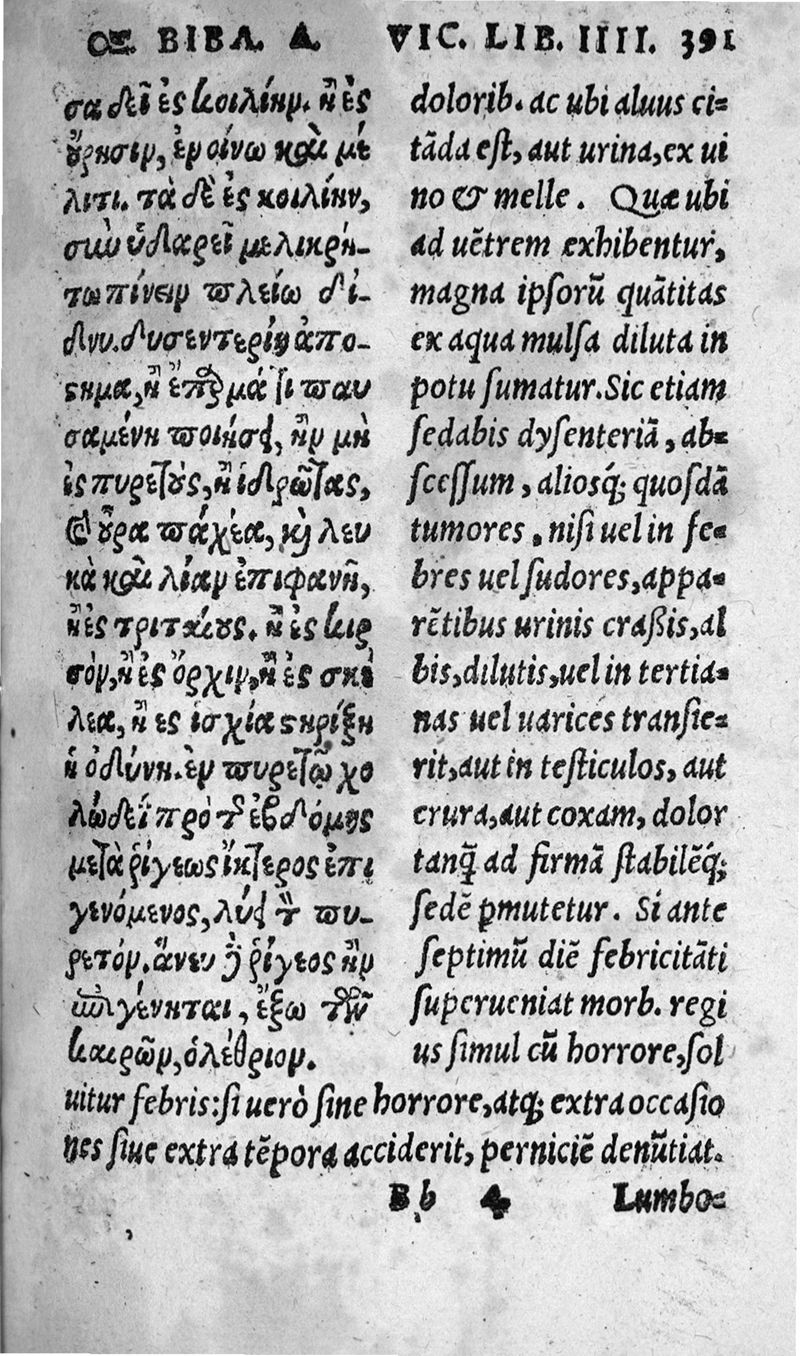 ΟΞ. ΒΙΒΛ. Δ.
σα δεῖ ἐς κοιλίην. ἢ ἐς
οὔρησιν, ἐν οἴνῳ καὶ μέ
λιτι. τὰ δὲ ἐς κοιλίην,
σιὼ ὑδαρεῖ μελικρή-
τω πίνειν πλείω δί-
δνυ. δυσεντερίη ἀπο-
στημα, ἢ ἔπαρμά τι παυ
σαμένη ποιήσει, ἢν μὴ
ἐς πυρετοὺς, ἢ ἱδρῶτας,
ᾧ οὖρα παχέα, καὶ λευ
κὰ καὶ λίαν ἐπιφανῆ,
ἢ ἐς τριταίους. ἢ ἐς κιρ
σὸν, ἢ ἐς ὄρχιν, ἢ ἐς σκέ
λεα, ἢ ἐς ἰσχία στηρίξη
ἡ ὀδύνη. ἐν πυρετῷ χο
λώδεϊ πρὸ τ ἑβδόμης
μετὰ ῥίγεως ἴκτερος ἐπι
γενόμενος, λύει τ πυ-
ρετόν. ἄνευ δὲ ῥίγεος ἢν
ἐπιγένηται, ἔξω τῶν
καιρῶν, ὀλέθριον.
VIC. LIB. IIII. 391
dolorib. ac ubi aluus ci=
tāda est, aut urina, ex ui
no & melle. Quæ ubi
ad uētrem exhibentur,
magna ipsorū quātitas
ex aqua mulsa diluta in
potu sumatur. Sic etiam
sedabis dysenteriā, ab=
scessum, aliosq́; quosdā
tumores, nisi uel in fe=
bres uel sudores, appa=
rētibus urinis craßis, al
bis, dilutis, uel in tertia=
nas uel uarices transie=
rit, aut in testiculos, aut
crura, aut coxam, dolor
tanq̄ ad firmā stabilēq́;
sedē ꝑmutetur. Si ante
septimū diē febricitāti
superueniat morb. regi
us simul cū horrore, sol
uitur febris: si uerò sine horrore, atq; extra occasio
nes siue extra tēpora acciderit, perniciē denūtiat.
Bb 4 Lumbo=